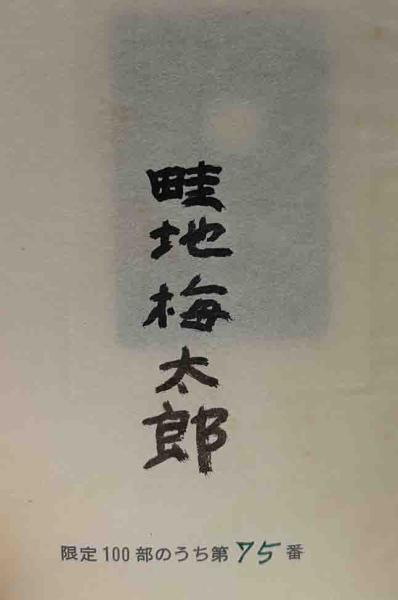 畦地梅太郎
限定100部のうち第75番